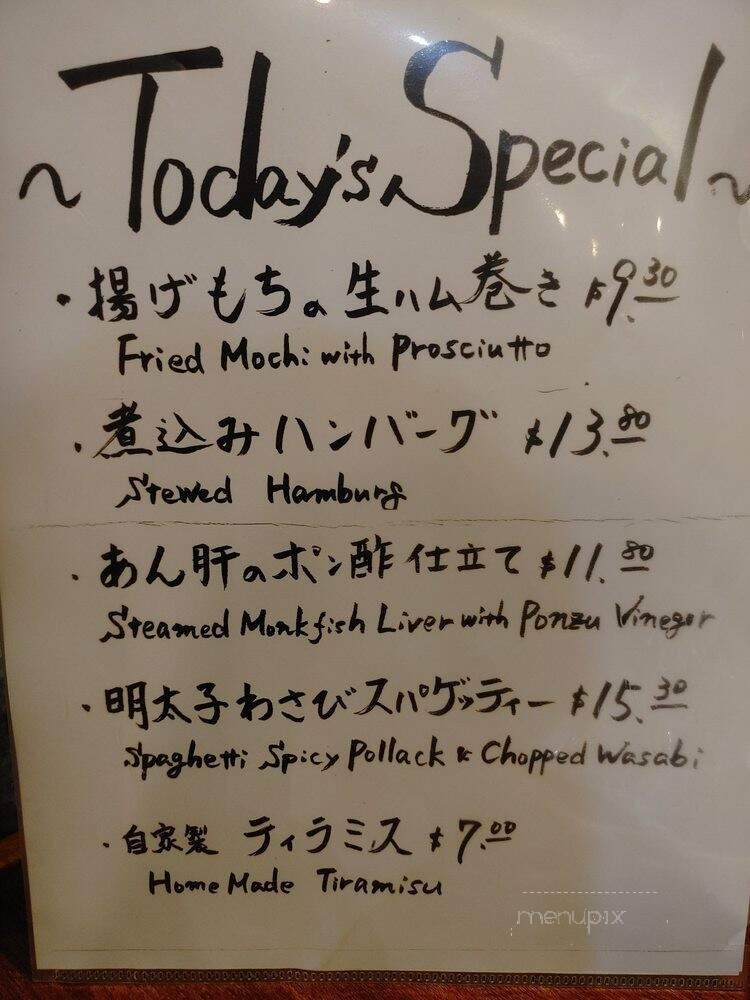 ~Today's Special~
・揚げもちの生ハム巻き $9.30
Fried Mochi with Prosciutto
・煮込みハンバーグ $13.80
Stewed Hamburg
・あん肝のポン酢仕立て $11.80
Steamed Monkfish Liver with Ponzu Vinegar
・明太子わさびスパゲッティー $15.30
Spaghetti Spicy Pollack & Chopped Wasabi
・自家製 ティラミス $7.00
Home Made Tiramisu
menupix